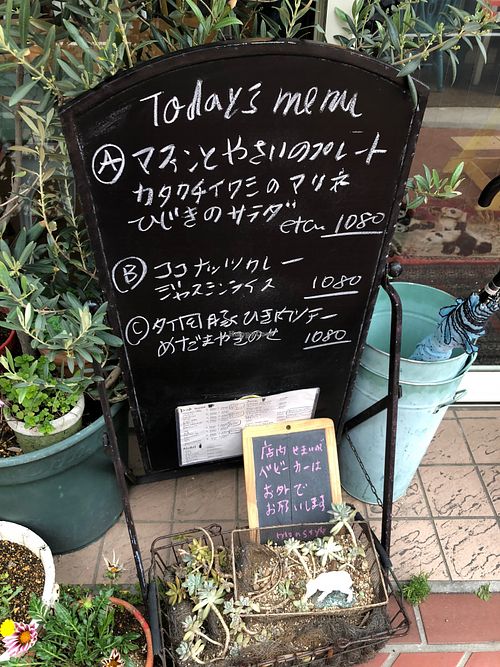 Today's menu
Ⓐ マフィンとやさいのプレート
カタクチイワシのマリネ
ひじきのサラダ
etc.. 1080
Ⓑ ココナッツカレー
ジャスミンライス 1080
Ⓒ タイ風豚ひき肉ソテー
めだまやきのせ 1080
店内せまいが
ベビーカーは
お外で
お願いします